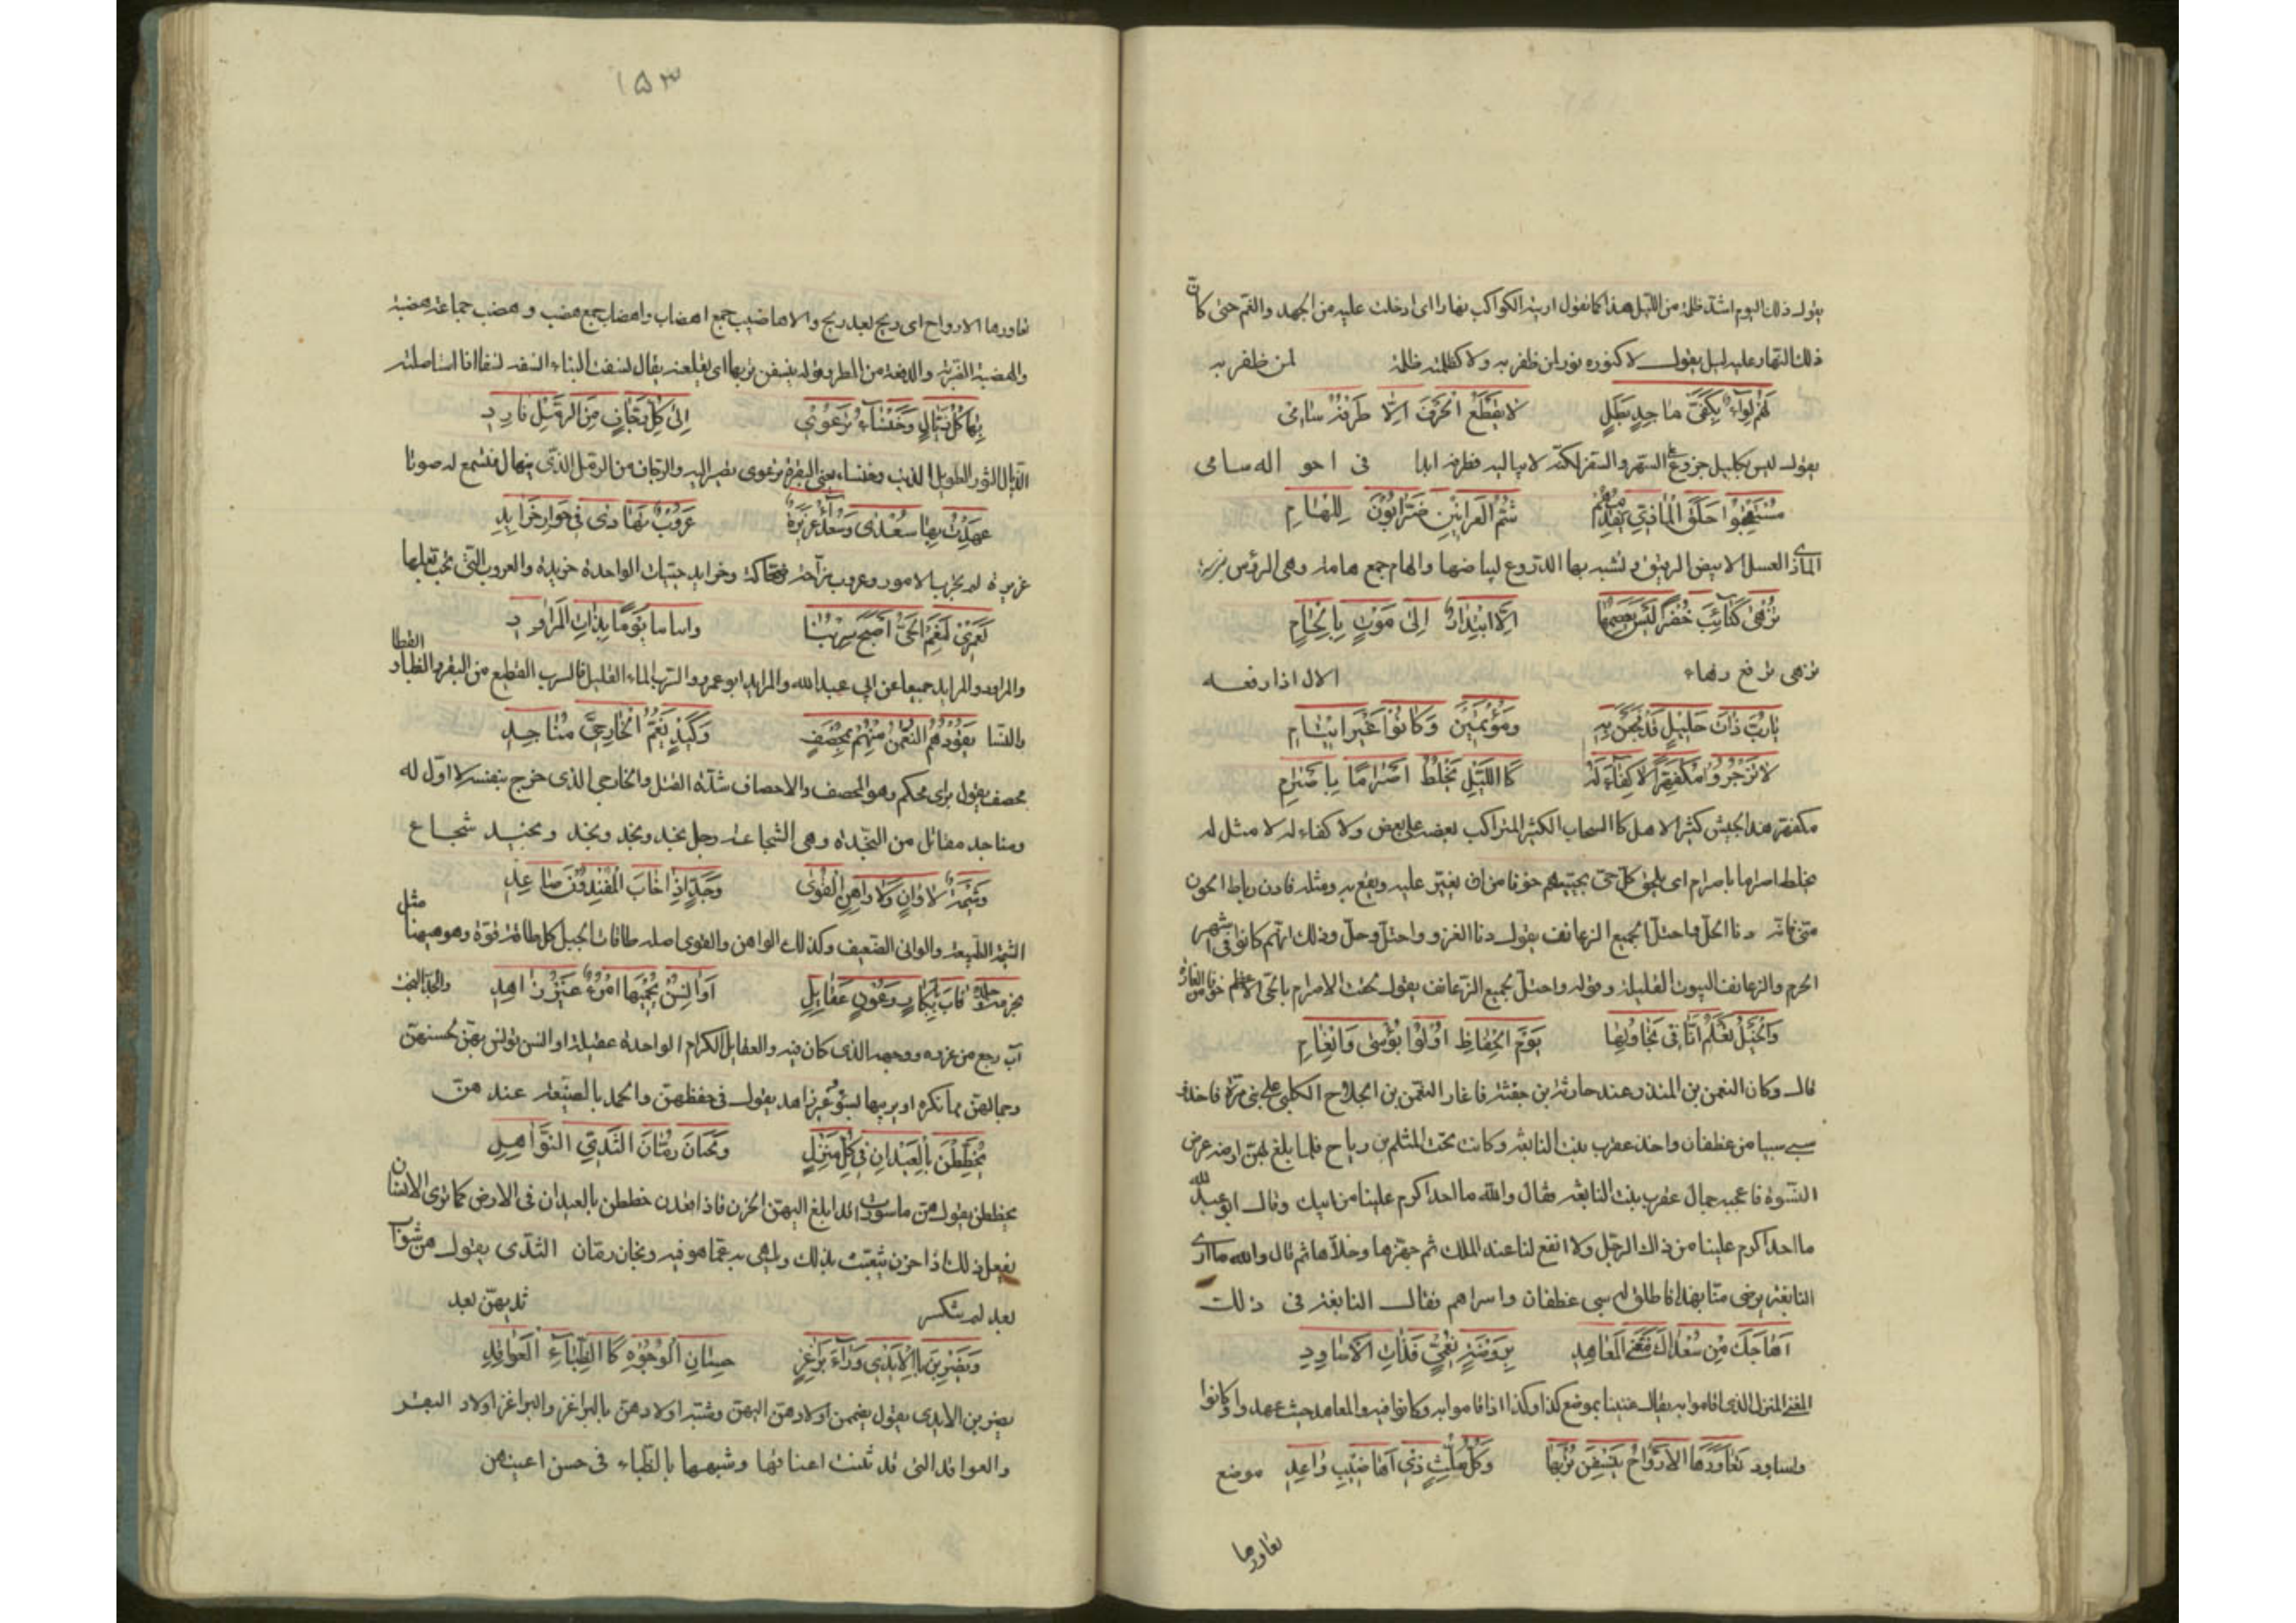 يقول ذلك اليوم اشد ظلمة من الليل هذا كما تقول اريته الكواكب نهارا اى ادخلت عليه من الجهد والغم حتى كان
ذلك النهار عليه ليل يقول لا كنوره نور لمن ظفر به ولا كظلمته ظلمة لمن ظفر به
لَهُمْ لِوَاءٌ بِكَفَّىْ مَاجِدٍ بَطَلٍ لَا يَقْطَعُ الْخَرْقَ اِلَّا طَرْفُهُ سَامِى
يقول ليس بكليل جزوع السهر والسفر لكنه لا يبالبه فطرفه ابدا فى احو اله سامى
مُسْتَحْقِبُوا حَلَقِ الْمَاذِيِّ يَقْدُمُهُمْ شُمُّ الْعَرَانِيْنِ ضَرَّابُونَ لِلْهَامِ
الماذى العسل الابيض الرقيق وتشبه بها الدروع لبياضها والهام جمع هامة وهى الرؤس
تُزْهَى كَتَائِبَ خُضْرًا لَيْسَ يَعْصِمُهَا اِلَّا ابْتِدَارٌ اِلَى مَوْتٍ بِاِلْجَامِ
تزهى ترفع وزهاء الال اذا رفعه
يَارُبَّ ذَاتِ حَلِيْلٍ قَدْ فَجَعْنَ بِهِ وَمُؤْتَمِيْنَ وَكَانُوْا غَيْرَ اَيْتَامِ
لَا تَزْجُرُوا مُكْفَهِرًّا لَا كِفَاءَ لَهُ كَاللَّيْلِ يَخْلِطُ اَصْرَامًا بِاَصْرَامِ
مكفهر هذا الجيش كثير الاهل كالسحاب الكثير المتراكب بعضه على بعض ولا كفاء له لا مثل له
يخلط اصراما باصرام اى يلحق كل حى بحيهم خوفا من ان يغير عليه ويقع به ومثله
دنا الحل واحتل الجميع الزعانف يقول دنا الغزو واحتل وحل وذلك انهم كانوا فى اشهر
الحرم والزعانف البيوت القليلة وقوله واحتل الجميع الزعانف يقول لحقت الاصرام بالحى الاعظم خوفا من الغارة
وَالْخَيْلُ تَعْلَمُ اَنَّا فِى تَجَاوُلِهَا يَوْمَ الْحِفَاظِ اُولُوا بُؤْسَى وَاَنْعَامِ
قال وكان النعمن بن المنذر عند حارثة بن جفنة فاغار النعمن بن الجلاح الكلبى على بنى مرة فاخذ
سبى سبيا من غطفان واخذ عقرب بنت النابغة وكانت تحت المثلم بن رياح فلما بلغ بهن ارضه عرض
النسوة فاعجبه جمال عقرب بنت النابغة فقال والله ما احد اكرم علينا من ابيك وقال ابو عبد الله
ما احد اكرم علينا من ذلك الرجل ولا انفع لنا عند الملك ثم جهزها وخلاها ثم قال والله ما ارى
النابغة يرضى منا بهذا فاطلق له سبى غطفان واسراهم فقال النابغة فى ذلك
اَهَاجَكَ مِنْ سُعْدَاكَ مَغْنَى الْمَعَاهِدِ بِرَوْضَةِ نُعْمِىٍّ فَذَاتِ الْاَسَاوِدِ
المغنى المنزل الذى اقاموا به يقال غنينا بموضع كذا وكذا اذا قاموا به وكانوا فيه والمعاهد حيث عهدوا وكانوا
واساود تَعَاوَرَهَا الْاَرْوَاحُ يَنْسِفْنَ تُرْبَهَا وَكُلُّ مُلِثٍّ ذِى اَهَاضِيْبِ رَاعِدِ موضع
تعاورها
١٥٣
تعاورها الارواح اى ريح بعد ريح والاهاضيب جمع اهضاب واهضاب جمع هضب وهضب جماعة هضبة
والهضبة الضربة والدفعة من المطر وقوله ينسفن تربها اى يقلعنه يقال نسفت البناء انسفه نسفا اذا استاصلته
بِهَا كُلُّ ذَيَّالٍ وَخَنْسَاءَ تَرْعَوِى اِلَى كُلِّ رَجَّافٍ مِنَ الرَّمْلِ فَارِدِ
الذيال الثور الطويل الذنب وخنساء يعنى البقرة ترعوى تصير اليه والرجاف من الرمل الذى ينهال فتسمع له صوتا
عَهِدْتُ بِهَا سُعْدَى وَسُعْدَى غَرِيْرَةٌ عَرُوْبٌ تَهَادَى فِى جَوَارٍ خَرَايِدِ
غريرة لم تجرب الامور وعروب مزاحة ضحاكة وخرايد حييات الواحدة خريدة والعروب التى تحب بعلها
لَعَمْرِى لَنِعْمَ الْحَىُّ اَصْبَحَ سِرْبُنَا يَوْمًا بِذَاتِ الْمَرَاوِدِ
والمراود والمرايد جميعا عن ابى عبد الله والمرايد ابو عمرو والسرب الماء القليل فالسرب القطيع من البقر والظباء والقطا
والنسا يَقُوْدُهُمُ النُّعْمٰنُ مِنْهُمْ بِمُحْصَفٍ وَكَيْدٍ يَعُمُّ الْخَارِجِىَّ مُنَاجِدِ
محصف يقول براى محكم وهو المحصف والاحصاف شدة الفتل والخارجى الذى خرج بنفسه لا اول له
ومناجد مقاتل من النجدة وهى الشجاعة رجل نجد ونجد ونجد ونجيد شجاع
وَشِيْمَةِ لَا وَانٍ وَلَا وَاهِنِ الْقُوَى وَجَدٍّ اِذَا خَابَ الْمُفِيْدُوْنَ صَاعِدِ
الشيمة الطبيعة والوانى الضعيف وكذلك الواهن والقوى اصله طاقات الحبل كل طاقة قوة وهو ههنا مثل
فَاٰبَ بِاَبْكَارٍ وَعُوْنٍ عَقَايِلٍ اَوَانِسَ يَحْمِيْهَا امْرُؤٌ غَيْرُ زَاهِدِ والجد البخت
اٰب رجع من غزوه ووجهه الذى كان فيه والعقايل الكرام الواحدة عقيلة اوانس يؤنس بهن لحسنهن
وجمالهن مما تكره او يريبها بسوء غير زاهد يقول فى حفظهن والحمد بالصنيعة عندهن
يُخَطِّطْنَ بِالْعِيْدَانِ فِى كُلِّ مَنْزِلٍ وَيَخْبَأْنَ رُمَّانَ الثُّدِيِّ النَّوَاهِدِ
يخططن يقول هن ماسورات قد ابلغ اليهن الحزن فاذا قعدن خططن بالعيدان فى الارض كما ترى الانسان
يفعل ذلك اذا حزن يتعبث بذلك ويلهى به عما هو فيه ويخبان رمان الثدى يقول هن شواب
بعد لم يتكسر ثديهن بعد
وَيَضْرِبْنَ بِالْاَيْدِى وَرَاءَ بَرَاغِزٍ حِسَانِ الْوُجُوْهِ كَالظِّبَاءِ الْعَوَاقِدِ
يضربن بالايدى يقول يضممن اولادهن اليهن وشبه اولادهن بالبراغز والبراغز اولاد البقر
والعواقد التى قد ثنت اعناقها وشبهها بالظباء فى حسن اعينهن